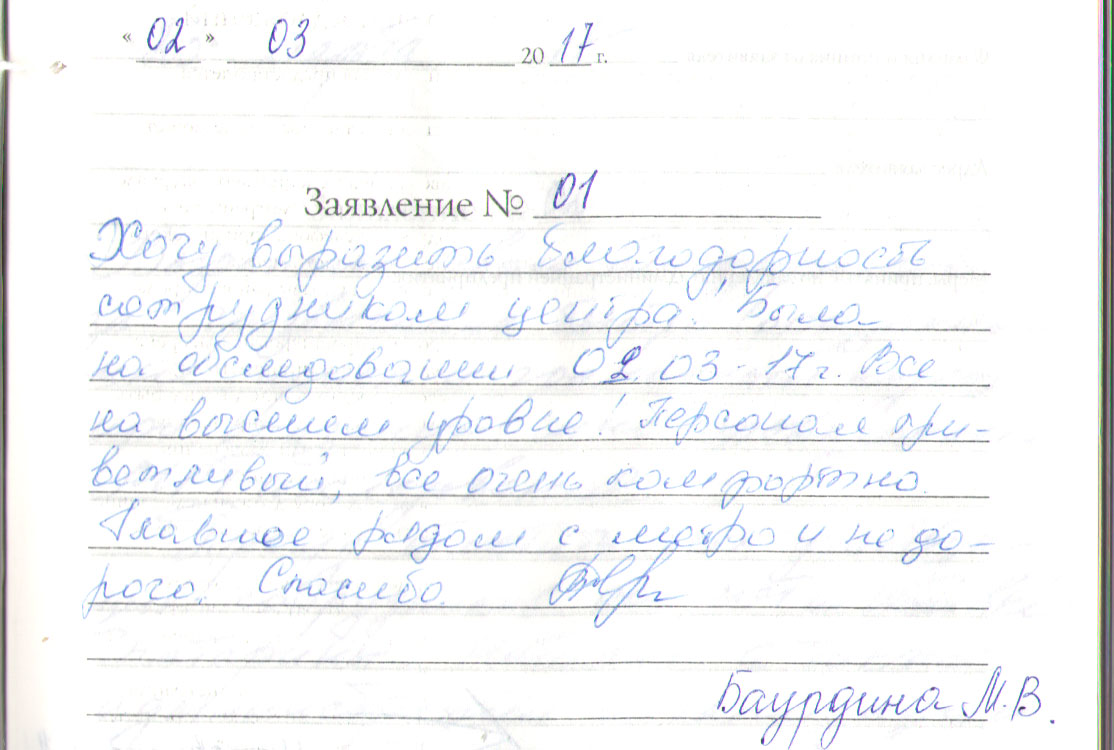 « 02 » 03 2017 г.
Заявление № 01
Хочу выразить благодарность
сотрудникам центра. Была
на обследовании 02.03.17 г. Все
на высшем уровне! Персонал при-
ветливый, все очень комфортно.
Главное рядом с метро и не до-
рого. Спасибо.
Баурдина М.В.